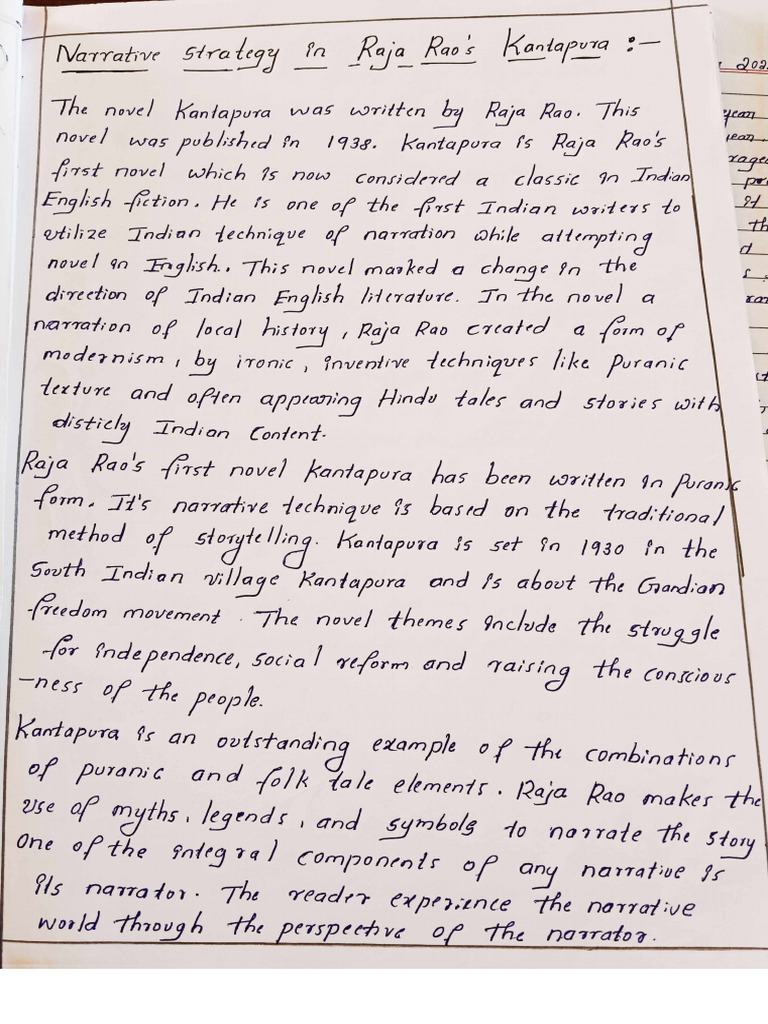 Narrative strategy in Raja Rao's Kantapura :-
The novel Kantapura was written by Raja Rao. This
novel was published in 1938. Kantapura is Raja Rao's
first novel which is now considered a classic in Indian
English fiction. He is one of the first Indian writers to
utilize Indian technique of narration while attempting
novel in English. This novel marked a change in the
direction of Indian English literature. In the novel a
narration of local history, Raja Rao created a form of
modernism, by ironic, inventive techniques like Puranic
texture and often appearing Hindu tales and stories with
disticly Indian Content.
Raja Rao's first novel Kantapura has been written in Puranic
form. It's narrative technique is based on the traditional
method of storytelling. Kantapura is set in 1930 in the
South Indian village Kantapura and is about the Gandian
freedom movement. The novel themes include the struggle
for independence, social reform and raising the conscious
-ness of the people.
Kantapura is an outstanding example of the combinations
of puranic and folk tale elements. Raja Rao makes the
use of myths, legends, and symbols to narrate the story
One of the integral components of any narrative is
its narrator. The reader experience the narrative
world through the perspective of the narrator.